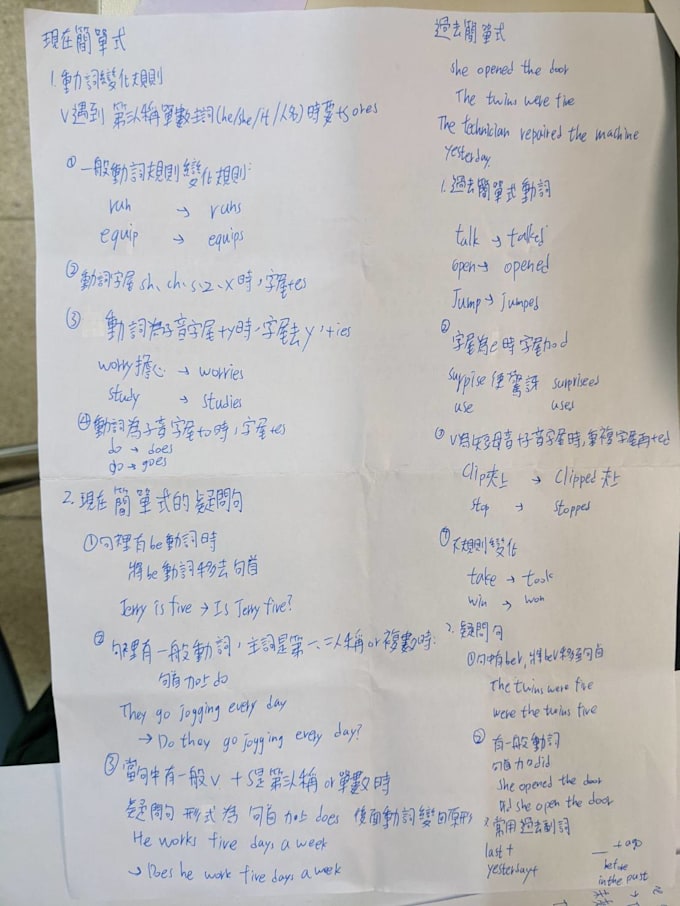 現在簡單式
1.動詞變化規則
V遇到 第三人稱單數主詞(he/she/it/人名)時要+s or es
① 一般動詞規則變化規則:
run → runs
equip → equips
② 動詞字尾sh、ch、s、z、x時,字尾+es
③ 動詞為子音字尾+y時,字尾去y,+ies
worry擔心 → worries
study → studies
④動詞為子音字尾+o時,字尾+es
do → does
go → goes
2.現在簡單式的疑問句
①句裡有be動詞時
將be動詞移去句首
Jerry is five → Is Jerry five?
② 句裡有一般動詞,主詞是第一、二人稱or複數時:
句首加上do
They go jogging every day
→ Do they go jogging every day?
③ 當句中有一般V +S是第三人稱or單數時
疑問句 形式為 句首加上does 後面動詞變回原形
He works five days a week
→ Does he work five days a week
過去簡單式
she opened the door
The twins were five
The technician repaired the machine
yesterday
1.過去簡單式動詞
talk → talked
open → opened
Jump → jumped
② 字尾為e時字尾加d
surpise 使驚訝 surprised
use used
V為短母音+子音字尾時,重複字尾再+ed
Clip夾上 → Clipped 夾上
stop → stopped
④ 不規則變化
take → took
win → won
疑問句
①句中有beV,將beV移至句首
The twins were five
were the twins five
② 有一般動詞
句首加did
she opened the door
Did she open the door
常用過去副詞
last +
yesterday+
__ + ago
before
in the past